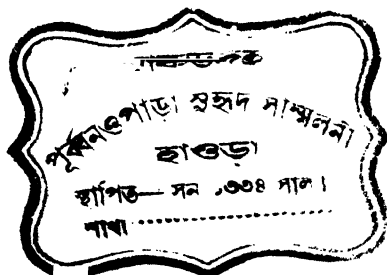 পূর্ব্বনওপাড়া সুহৃদ সম্মিলনী
হাওড়া
স্থাপিত— সন ১৩৩৪ সাল।
শাখা